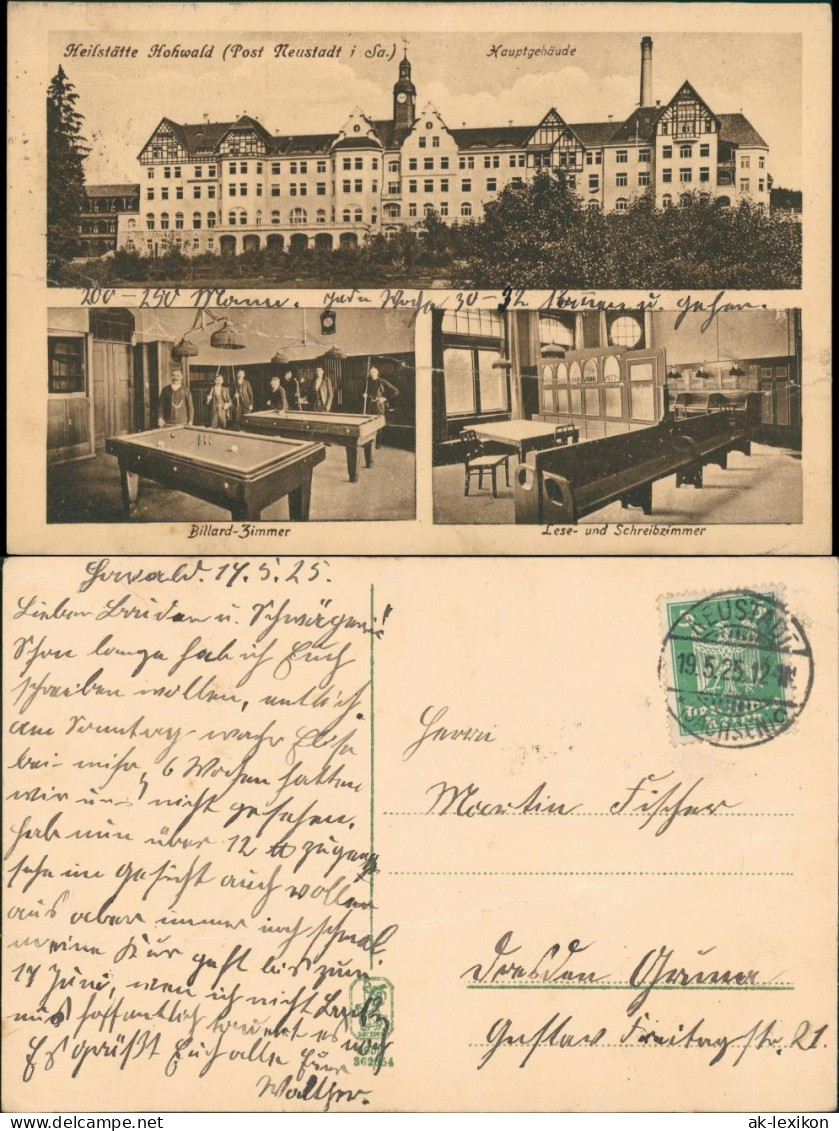 Heilstätte Hohwald (Post Neustadt i Sa.) Hauptgebäude
200-250 Mann. Jede Woche 30-32 kommen u. gehen.
Billard-Zimmer
Lese- und Schreibzimmer
17.5.25.
Lieber Bruder u. Schwägerin!
Schon lange hab ich Euch
schreiben wollen, endlich.
am Sonntag war Else
bei mir, 6 Wochen hatten
wir uns nicht gesehen,
hab nun über 12 zugenom
sehe im Gesicht auch voller
aus aber immer noch schmal
meine Kur geht bis zum
17 Juni, wen ich nicht
muß hoffentlich dauert es noch
Es grüßt Euch alle Euer
Walther.
NEUSTADT
19.5.25.12
(SACHSEN)
Herrn
Martin Fischer
Dresden Gruna
Gustav Freitagstr. 21.
ak-lexikon